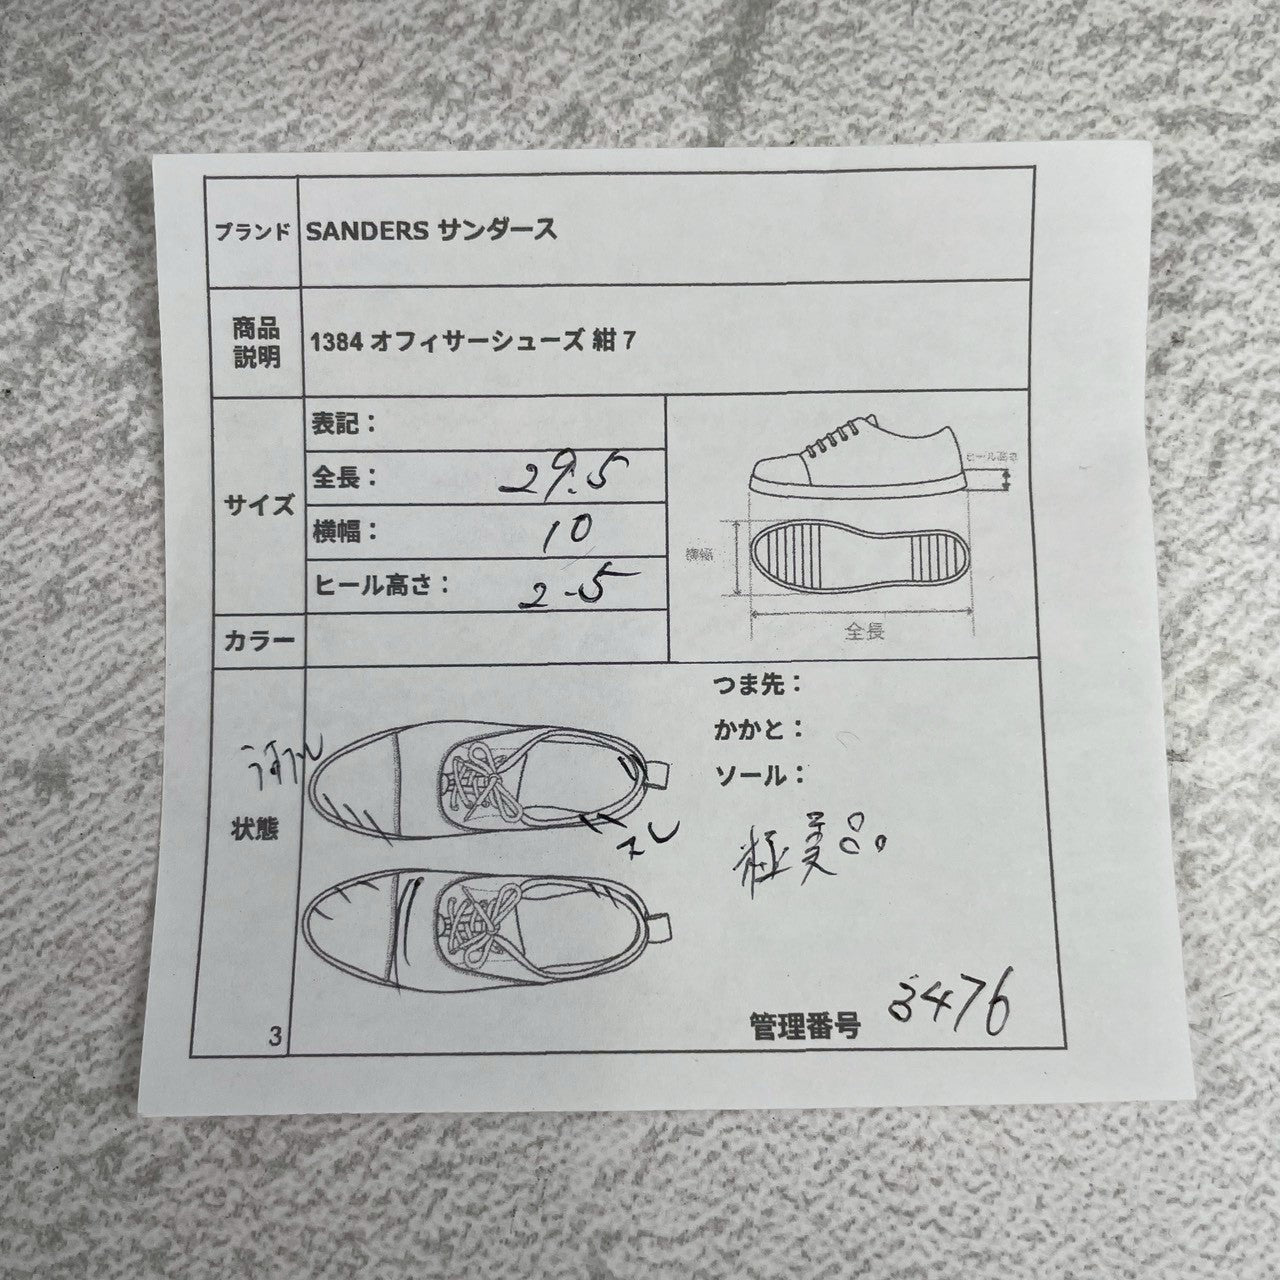 ブランド SANDERS サンダース
商品
説明
1384 オフィサーシューズ 紺 7
サイズ
表記：
全長： 29.5
横幅： 10
ヒール高さ： 2.5
ヒール高さ
横幅
全長
カラー
つま先：
かかと：
ソール：
状態
スレ
極美品
管理番号 3476
3